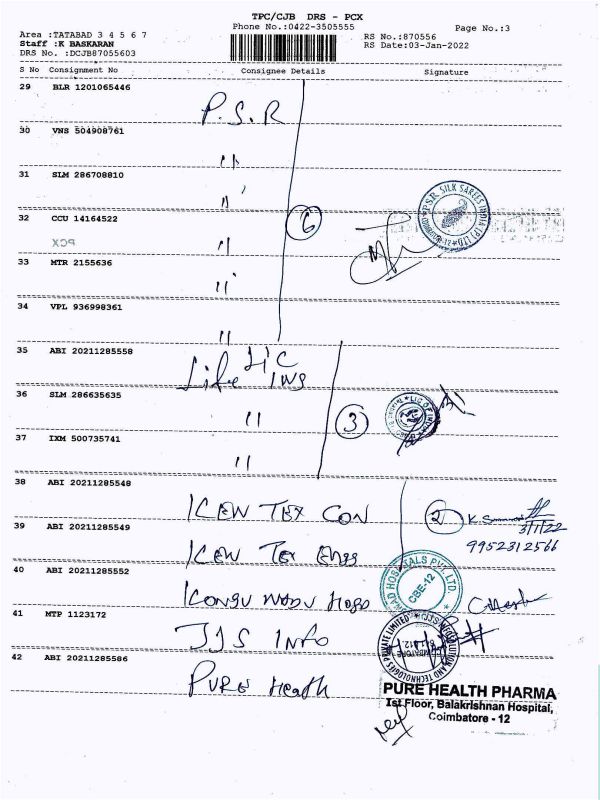 TPC/CJB DRS - PCX
Phone No.:0422-3505555
Page No.:3
Area :TATABAD 3 4 5 6 7
Staff :K BASKARAN
DRS No. :DCJB87055603
RS No.:870556
RS Date:03-Jan-2022
S No Consignment No Consignee Details Signature
29 BLR 1201065446 P.S.R
30 VNS 504908761 "
31 SLM 286708810 "
6
P.S.R SILK SAREES INDIA (P) LTD
32 CCU 14164522 "
PCX
33 MTR 2155636 "
34 VPL 936998361 "
35 ABI 20211285558 Life LIC INS
36 SLM 286635635 "
3
LIC OF INDIA
37 IXM 500735741 "
38 ABI 20211285548 ICEW TEX CON
2
3/1/22
9952312566
39 ABI 20211285549 ICEW Tex Engg
40 ABI 20211285552 KONGU NADU HOSP
HOSPITALS PVT. LTD.
CBE-12
41 MTP 1123172 JJS INFO
42 ABI 20211285586 PURE Heath
PURE HEALTH PHARMA
Ist Floor, Balakrishnan Hospital,
Coimbatore - 12